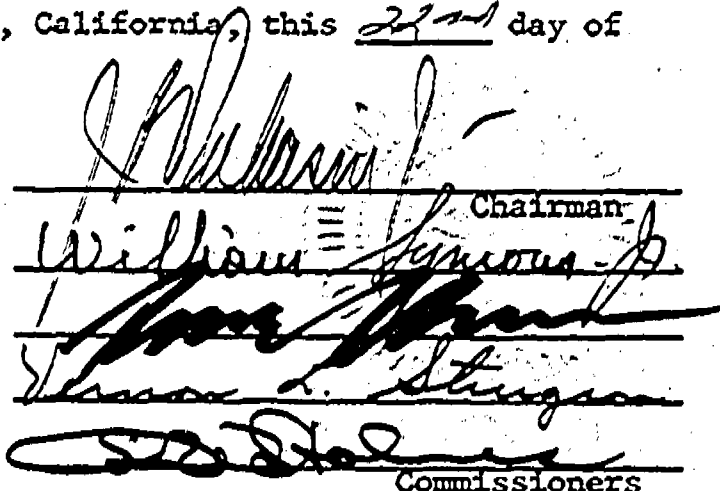 , California, this 22nd day of
Chairman
William Symons Jr.
Vernon L. Sturgeon
Holmes
Commissioners